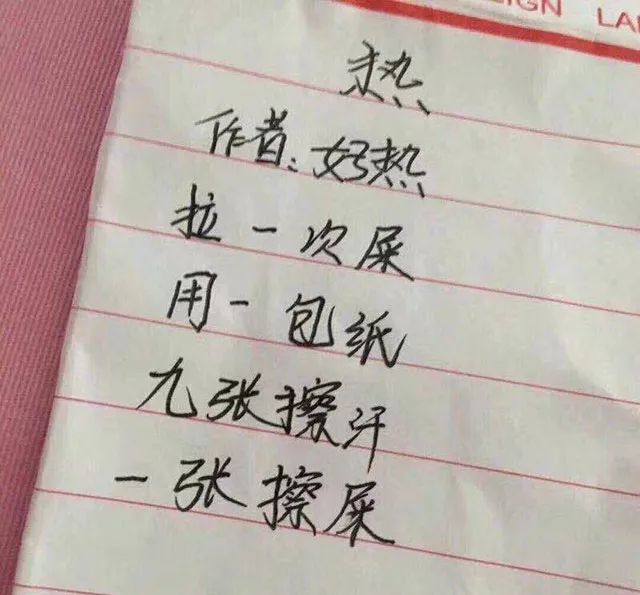 SIGN LA
热
作者:好热
拉一次屎
用一包纸
九张擦汗
一张擦屎